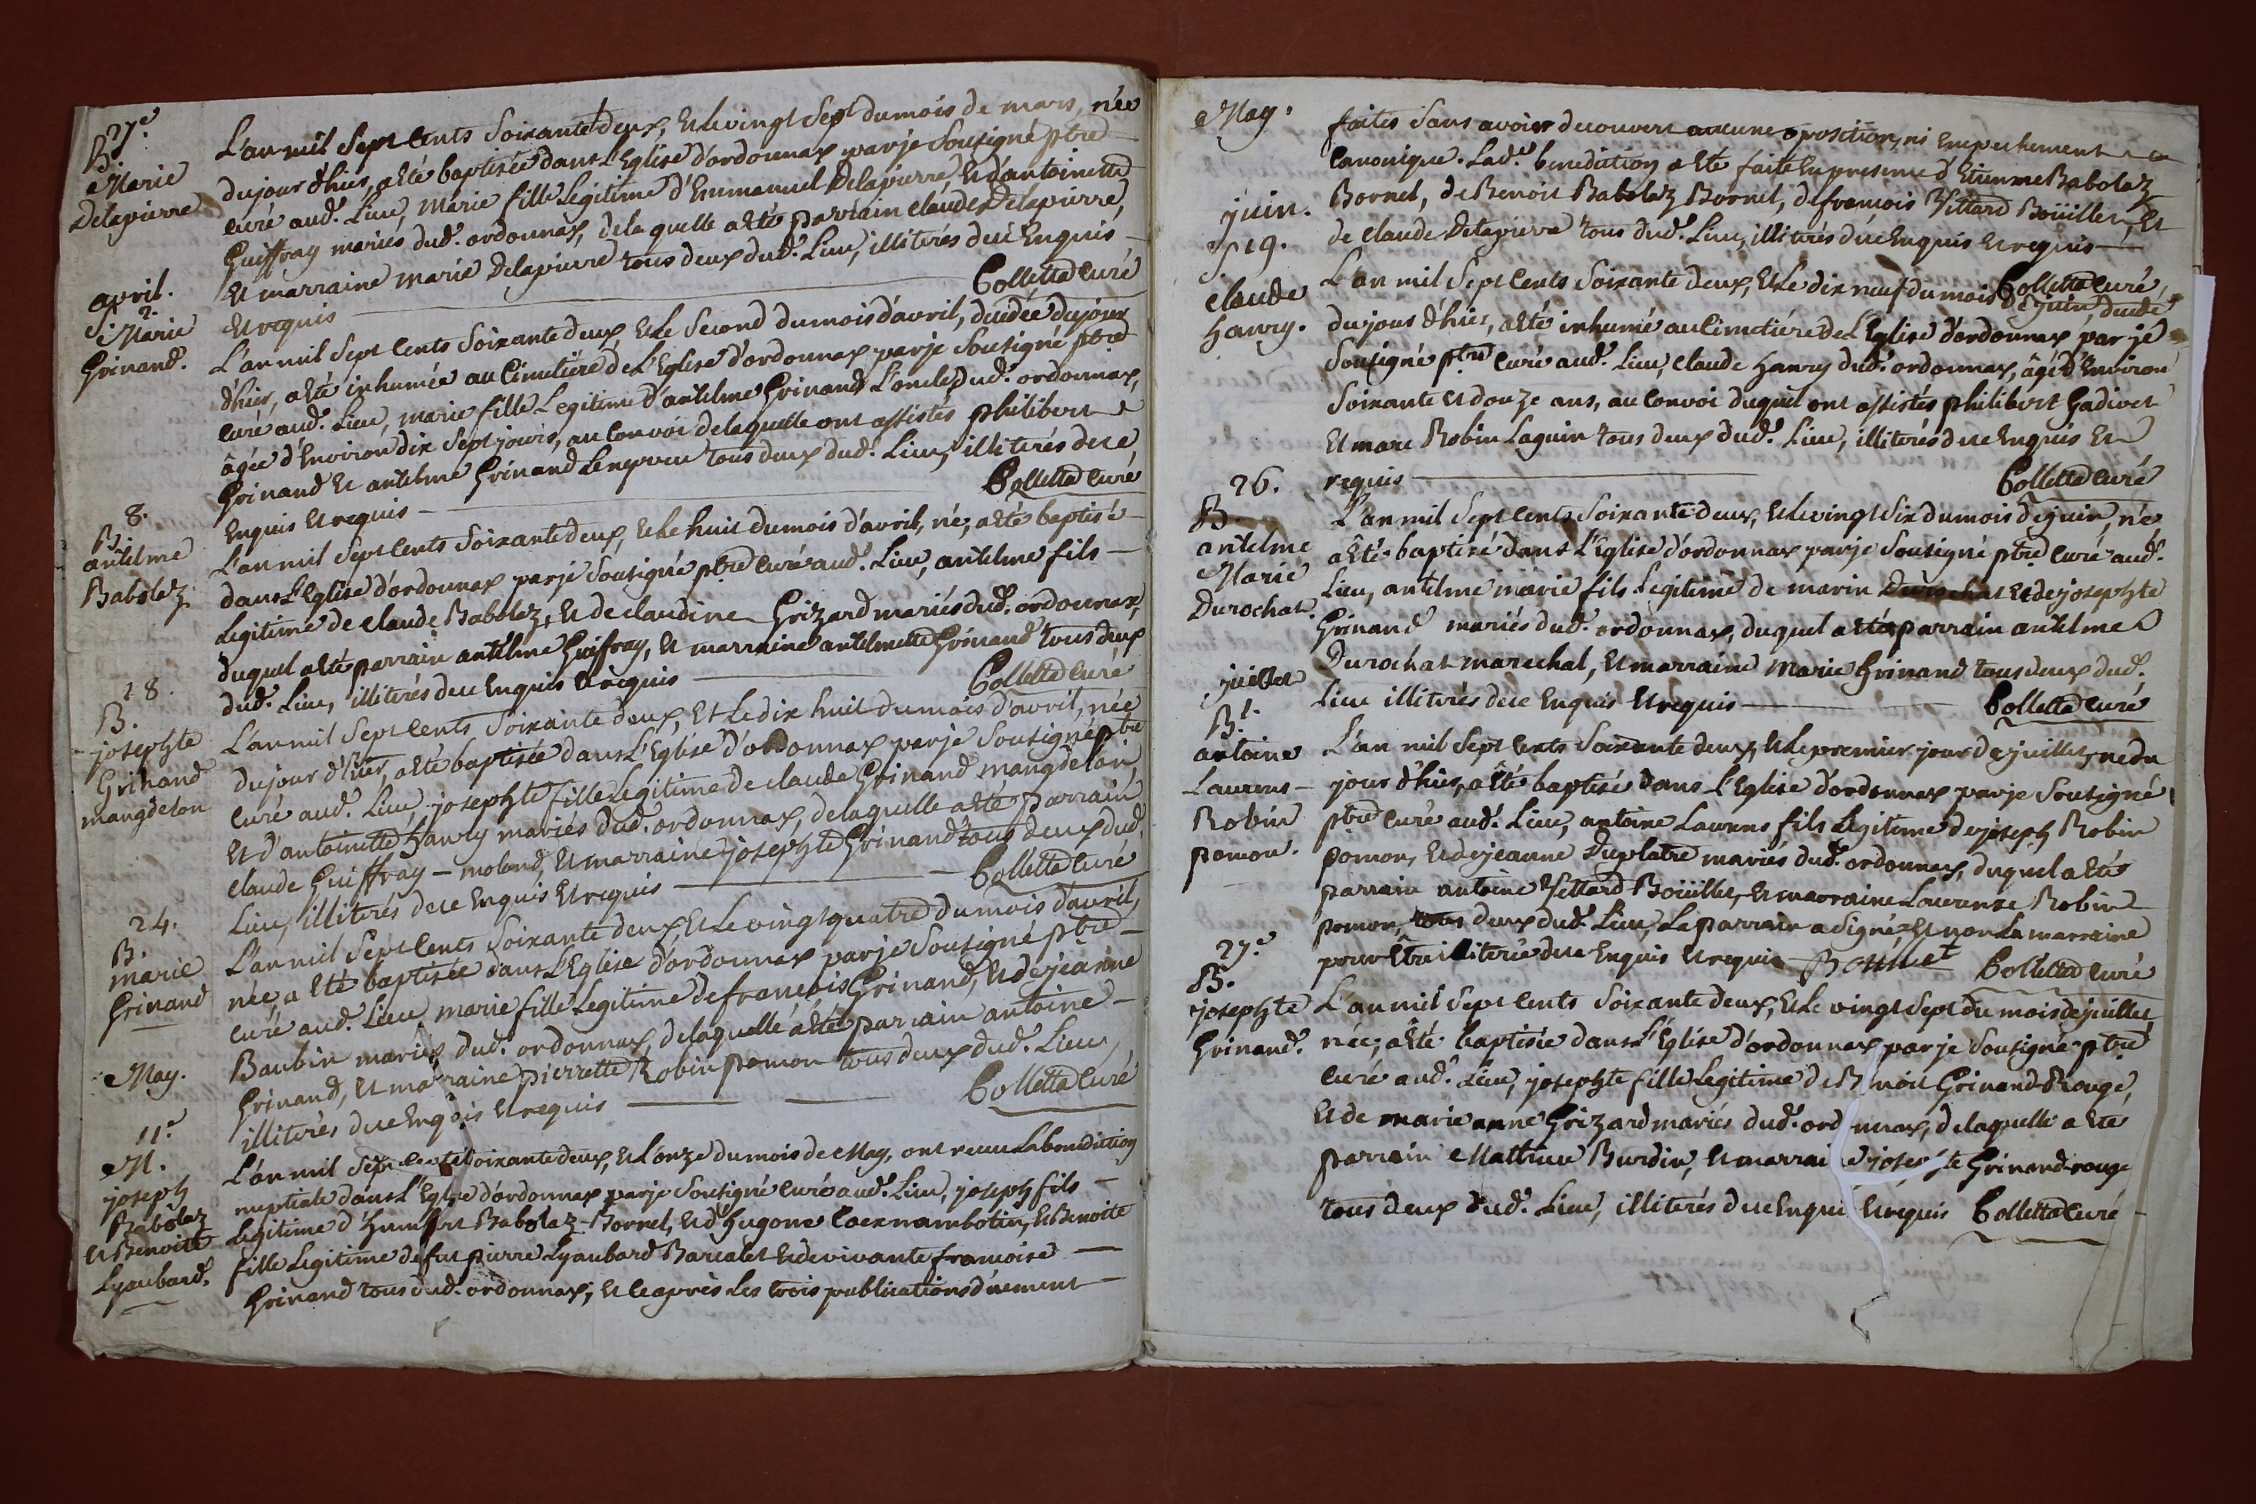 27.e
B.
Marie
Delapierre
L'an mil sept cents soixante deux, et le vingt sept du mois de mars, née
du jour d'hier, a été baptisée dans l'Eglise d'ordonnax par je sousigné ptre
curé aud. Lieu, Marie fille Legitime d'Emmanuel Delapierre et d'antoinette
Guiffray mariés dud. ordonnax, de la quelle a été parrain claude Delapierre,
et marraine marie Delapierre tous deux dud. Lieu, illiterés de ce Enquis
et requis Collette curé
avril.
2.
S. Marie
Grinand.
L'an mil sept cents soixante deux, et le second du mois d'avril, decedée du jour
d'hier, a été inhumée au Cimetiére de L'Eglise d'ordonnax par je sousigné ptre
curé aud. Lieu, marie fille Legitime d'antelme Grinand L'oncle dud. ordonnax,
âgée d'Environ dix sept jours, au convoi de laquelle ont assistés philibert
Grinand et antelme Grinand Leneveu tous deux dud. Lieu, illiterés de ce
Enquis et requis Collette curé
8.
B.
antelme
Babolaz
L'an mil sept cents soixante deux, et le huit du mois d'avril, né, a été baptisé
dans L'Eglise d'ordonnax par je sousigné ptre curé aud. Lieu, antelme fils
Legitime de claude Babolaz, et de claudine Grizard mariés dud. ordonnax,
duquel a été parrain antelme Guiffray, et marraine antelmette Grinand tous deux
dud. Lieu, illiterés de ce Enquis et requis Collette curé
18.
B.
josephte
Grinand
mangdelon
L'an mil sept cents soixante deux, et le dix huit du mois d'avril, née
du jour d'hier, a été baptisée dans L'Eglise d'ordonnax par je sousigné ptre
curé aud. Lieu, josephte fille Legitime de claude Grinand mangdelon
et d'antoinette hanry mariés dud. ordonnax, de laquelle a été parrain
claude Guiffray molond, et marraine josephte Grinand tous deux dud.
Lieu, illiterés de ce Enquis et requis Collette curé
24.
B.
marie
Grinand
L'an mil sept cents soixante deux et le vingt quatre du mois d'avril,
née, a été baptisée dans L'Eglise d'ordonnax par je sousigné ptre
curé aud. Lieu marie fille Legitime de françois Grinand, et de jeanne
Baubin mariés dud. ordonnax, de laquelle a été parrain antoine
Grinand, et marraine pierrette Robin pomon tous deux dud. Lieu,
illiterés de ce Enquis et requis Collette curé
May.
11.e
M.
joseph
Babolaz
et Benoite
Lyaubard.
L'an mil sept cents soixante deux, et l'onze du mois de May, ont recu La benediction
nuptiale dans L'Eglise d'ordonnax par je sousigné curé aud. Lieu, joseph fils
Legitime d'humbert Babolaz-Bornet, et d'hugone Caernambotin, et Benoite
fille Legitime de fut pierre Lyaubard Barcalet et de vivante francoise
Grinand tous dud. ordonnax; et ce après les trois publications dûement
May.
faites sans avoir decouvert aucune oposition, ni Empechement
canonique. Lad.e benediction a été faite en presence d'Etienne Babolaz
Bornet, de Benoit Babolaz Bornet, de francois Vittard Boüillet, et
de claude Delapierre tous dud. Lieu, illiterés de ce Enquis et requis
Collette curé
juin.
S. 19.
claude
hanry.
L'an mil sept cents soixante deux, et le dix neuf du mois de juin, decedé
du jour d'hier, a été inhumé au Cimetiére de L'Eglise d'ordonnax par je
sousigné ptre curé aud. Lieu, claude hanry dud. ordonnax, âgé d'Environ
soixante et douze ans, au convoi duquel ont assistés philibert Gadivet
et marc Robin Laguin tous deux dud. Lieu, illiterés de ce Enquis et
requis Collette curé
26.
B.
antelme
Marie
Durochat.
L'an mil sept cents soixante deux, et le vingt six du mois de juin, né
a été baptisé dans L'Eglise d'ordonnax par je sousigné ptre curé aud.
Lieu, antelme marie fils Legitime de marin Durochat et de josephte
Grinand mariés dud. ordonnax, duquel a été parrain antelme
Durochat marechal, et marraine Marie Grinand tous deux dud.
Lieu illiterés de ce Enquis et requis Collette curé
juillet
B. 1.
antoine
Laurens
Robin
pomon.
L'an mil sept cents soixante deux, et le premier jour de juillet, né du
jour d'hier, a été baptisé dans L'Eglise d'ordonnax par je sousigné
ptre curé aud. Lieu, antoine Laurens fils Legitime de joseph Robin
pomon, et de jeanne Duplatre mariés dud. ordonnax, duquel a été
parrain antoine Vittard Boüillet, et marraine Laurence Robin
pomon, tous deux dud. Lieu, Le parrain a signé et non La marraine
pour Être illiterée de ce Enquis et requis Bouillet Collette curé
27.e
B.
josephte
Grinand.
L'an mil sept cents soixante deux, et le vingt sept du mois de juillet
née, a été baptisée dans L'Eglise d'ordonnax par je sousigné ptre
curé aud. Lieu, josephte fille Legitime de Benoit Grinand-Rouge,
et de marie anne Grizard mariés dud. ordonnax, de laquelle a été
parrain Mathieu Burdin, et marraine josephte Grinand rouge
tous deux dud. Lieu, illiterés de ce Enquis et requis Collette curé